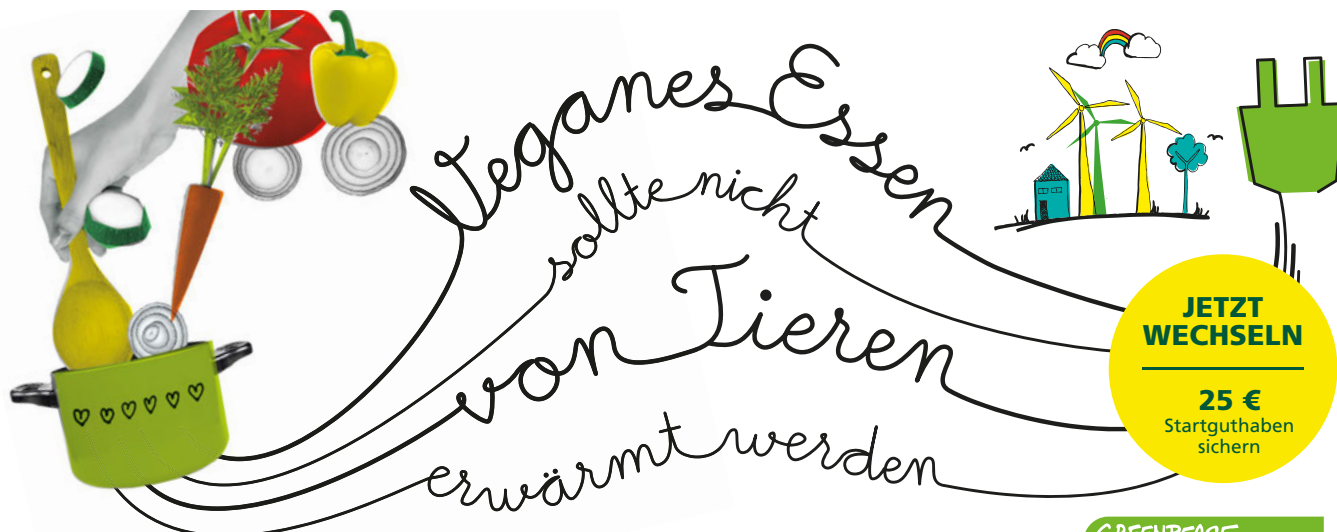 Veganes Essen
sollte nicht
von Tieren
erwärmt werden
JETZT
WECHSELN
25 €
Startguthaben
sichern
GREENPEACE